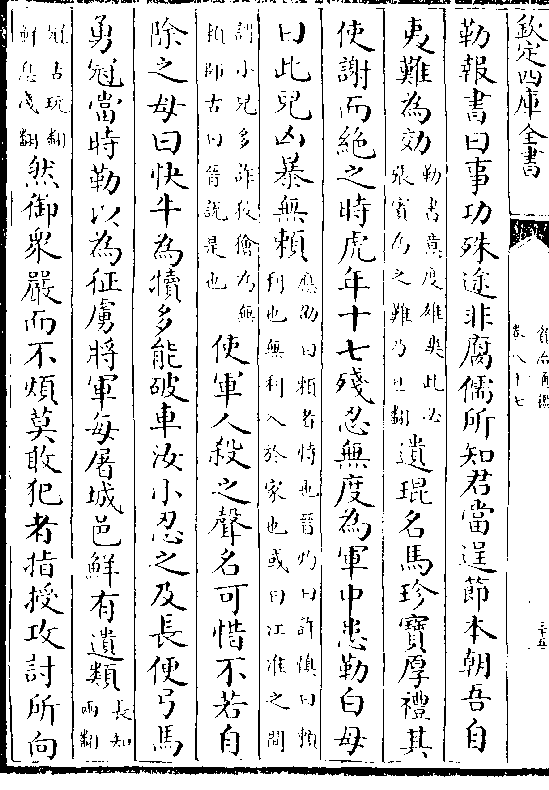 欽定四庫全書
資治通鑑
卷八十七
三十五
勒報書曰事功殊途非腐儒所知君當逞節本朝吾自
夷難為効勒書意度雄爽此必張賓為之難乃旦翻遺琨名馬珍寶厚禮其
使謝而絶之時虎年十七殘忍無度為軍中患勒白母
曰此兒凶暴無賴應劭曰賴者恃也晉灼曰許慎曰賴利也無利入於家也或曰江淮之間
謂小兒多詐狡獪為無賴師古曰晉説是也使軍人殺之聲名可惜不若自
除之母曰快牛為犢多能破車汝小忍之及長便弓馬
勇冠當時勒以為征虜將軍每屠城邑鮮有遺類長知兩翻
冠古玩翻鮮息淺翻然御衆嚴而不煩莫敢犯者指授攻討所向